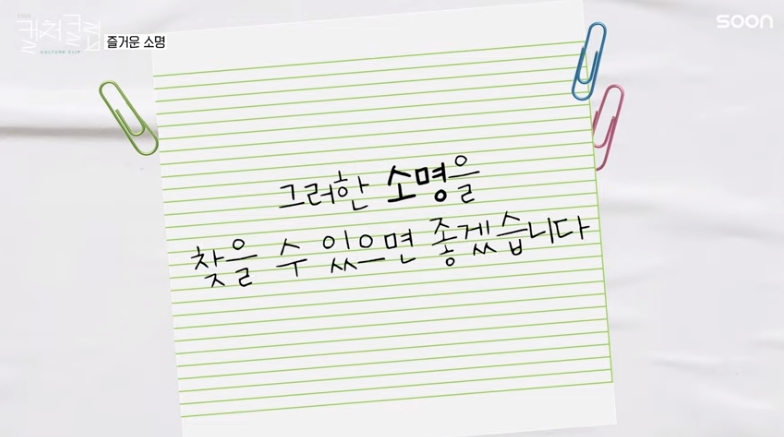 컬처클립
CULTURE CLIP
즐거운 소명
SOON
그러한 소명을
찾을 수 있으면 좋겠습니다